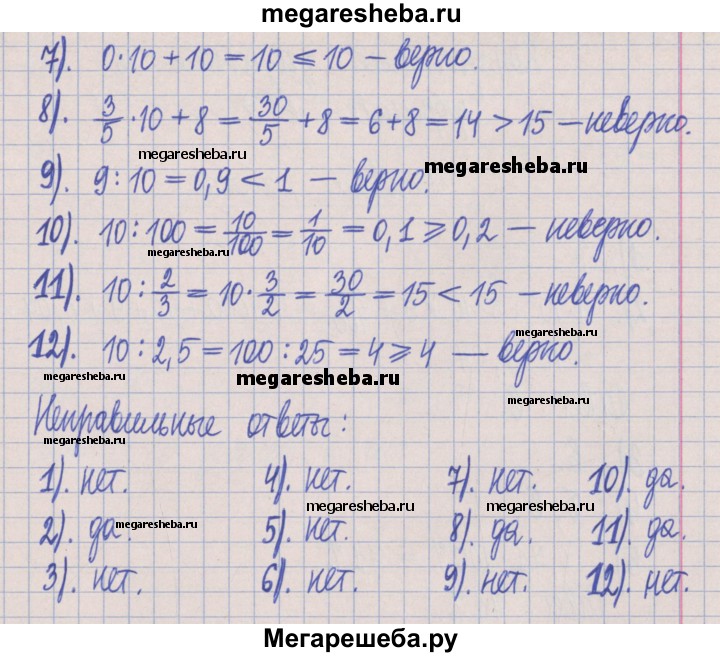 megaresheba.ru
7). 0·10+10=10≤10 – верно.
8). 3/5·10+8=30/5+8=6+8=14>15 – неверно.
megaresheba.ru
megaresheba.ru
9). 9:10=0,9<1 – верно.
10). 10:100=10/100=1/10=0,1≥0,2 – неверно.
megaresheba.ru
11). 10:2/3=10·3/2=30/2=15<15 – неверно.
megaresheba.ru
12). 10:2,5=100:25=4≥4 – верно.
megaresheba.ru
megaresheba.ru
Неправильные ответы:
megaresheba.ru
1). нет. 4). нет. 7). нет. 10). да.
megaresheba.ru
megaresheba.ru
2). да. 5). нет. 8). да. 11). да.
megaresheba.ru
3). нет. 6). нет. 9). нет. 12). нет.
Мегарешеба.ру